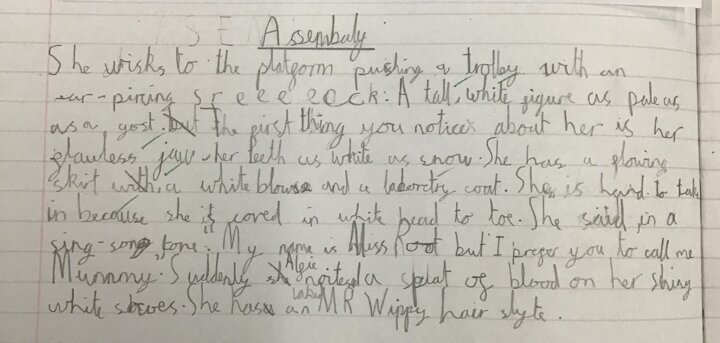 Assembaly
She wisks to the platgorm pushing a trolley with an
ear-pircing s r e e e eock: A tall, white figure as pale as
as a gost. but The first thing you notices about her is her
flawless jaw - her teeth as white as snow. She has a flowing
skirt with, a white blouse and a laboretry coat. She is hard to take
in because she is coved in white head to toe. She said in a
sing-song tone "My name is Miss Root but I prefer you to call me
Mummy. Suddenly she Algie noitesed a splat of blood on her shiny
white shoes. She has an MR Wippy hair style.